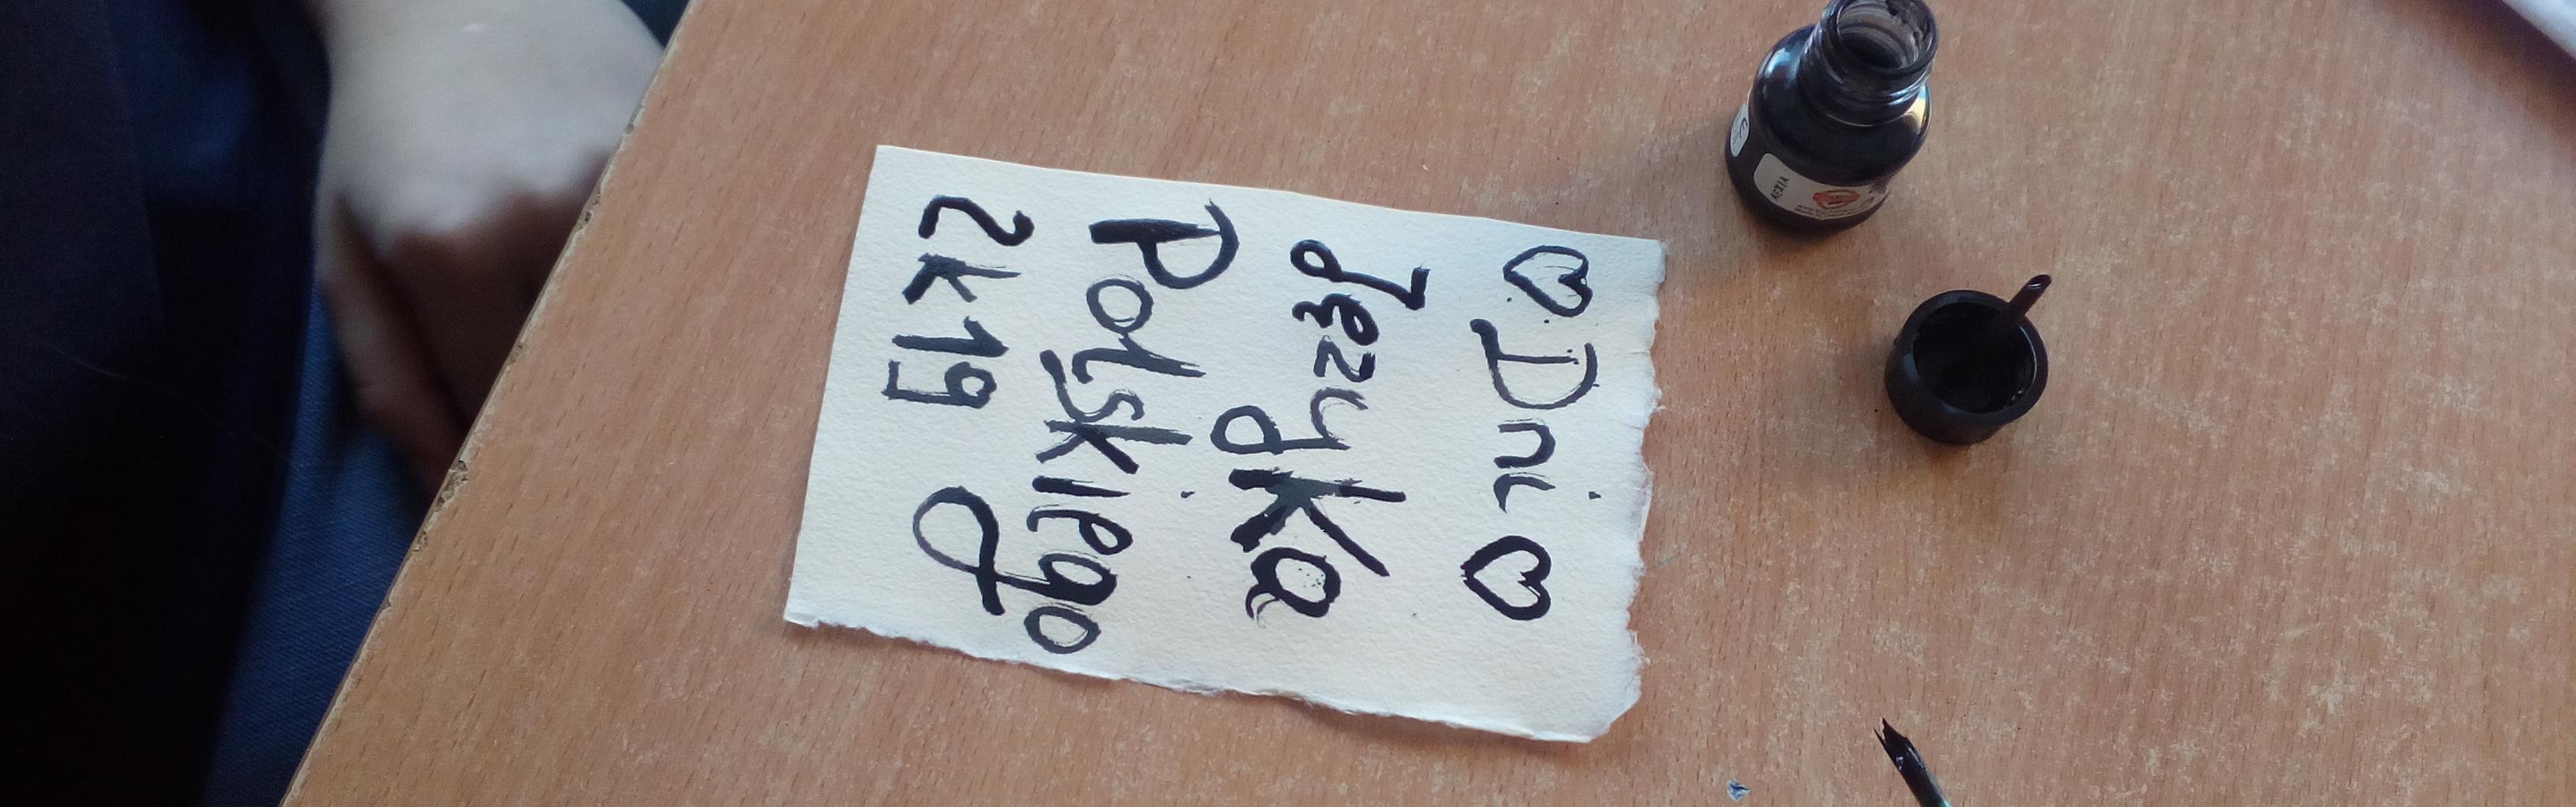 ♡ Dni ♡
Języka
Polskiego
2k19